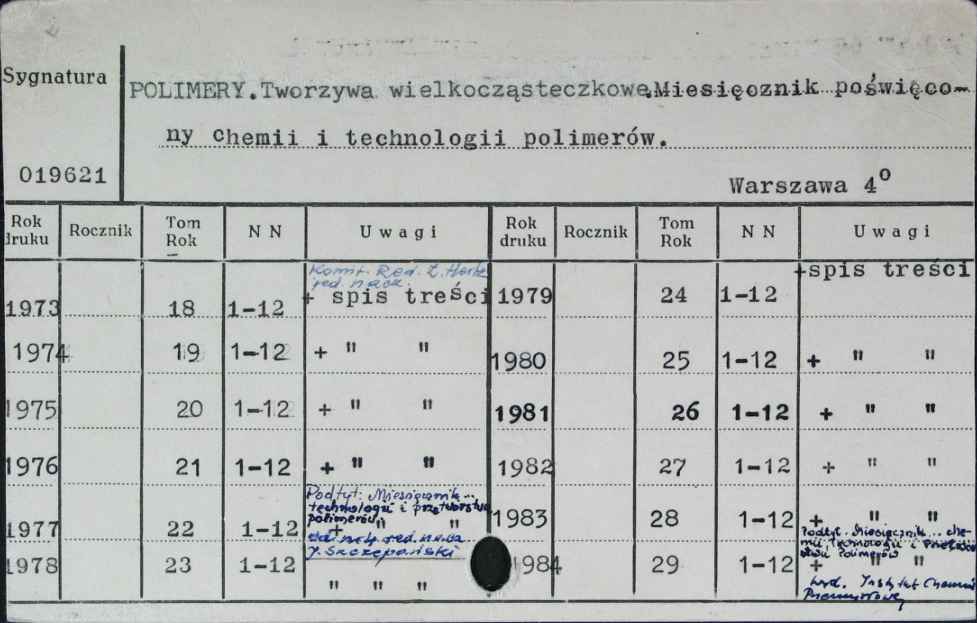 Sygnatura
POLIMERY.Tworzywa wielkocząsteczkowe.Miesięcznik poświęco-
ny chemii i technologii polimerów.
019621
Warszawa 4°
Rok druku Rocznik Tom Rok N N Uwagi Rok druku Rocznik Tom Rok N N Uwagi
Komit. Red. red. nacz.
1973 18 1-12 + spis treści 1979 24 1-12 +spis treści
1974 19 1-12 + " " 1980 25 1-12 + " "
1975 20 1-12 + " " 1981 26 1-12 + " "
1976 21 1-12 + " " 1982 27 1-12 + " "
Podtyt: Miesięcznik...
technologii i przetwórstwa
polimerów
1977 22 1-12 + " " 1983 28 1-12 + " "
red. nacz.
J. Szczepański
Podtyt. Miesięcznik .. che-
mii, technologii i przetwór-
stwu polimerów
1978 23 1-12 " " " 1984 29 1-12 + " "
wyd. Instytut Chemii
Przemysłowej